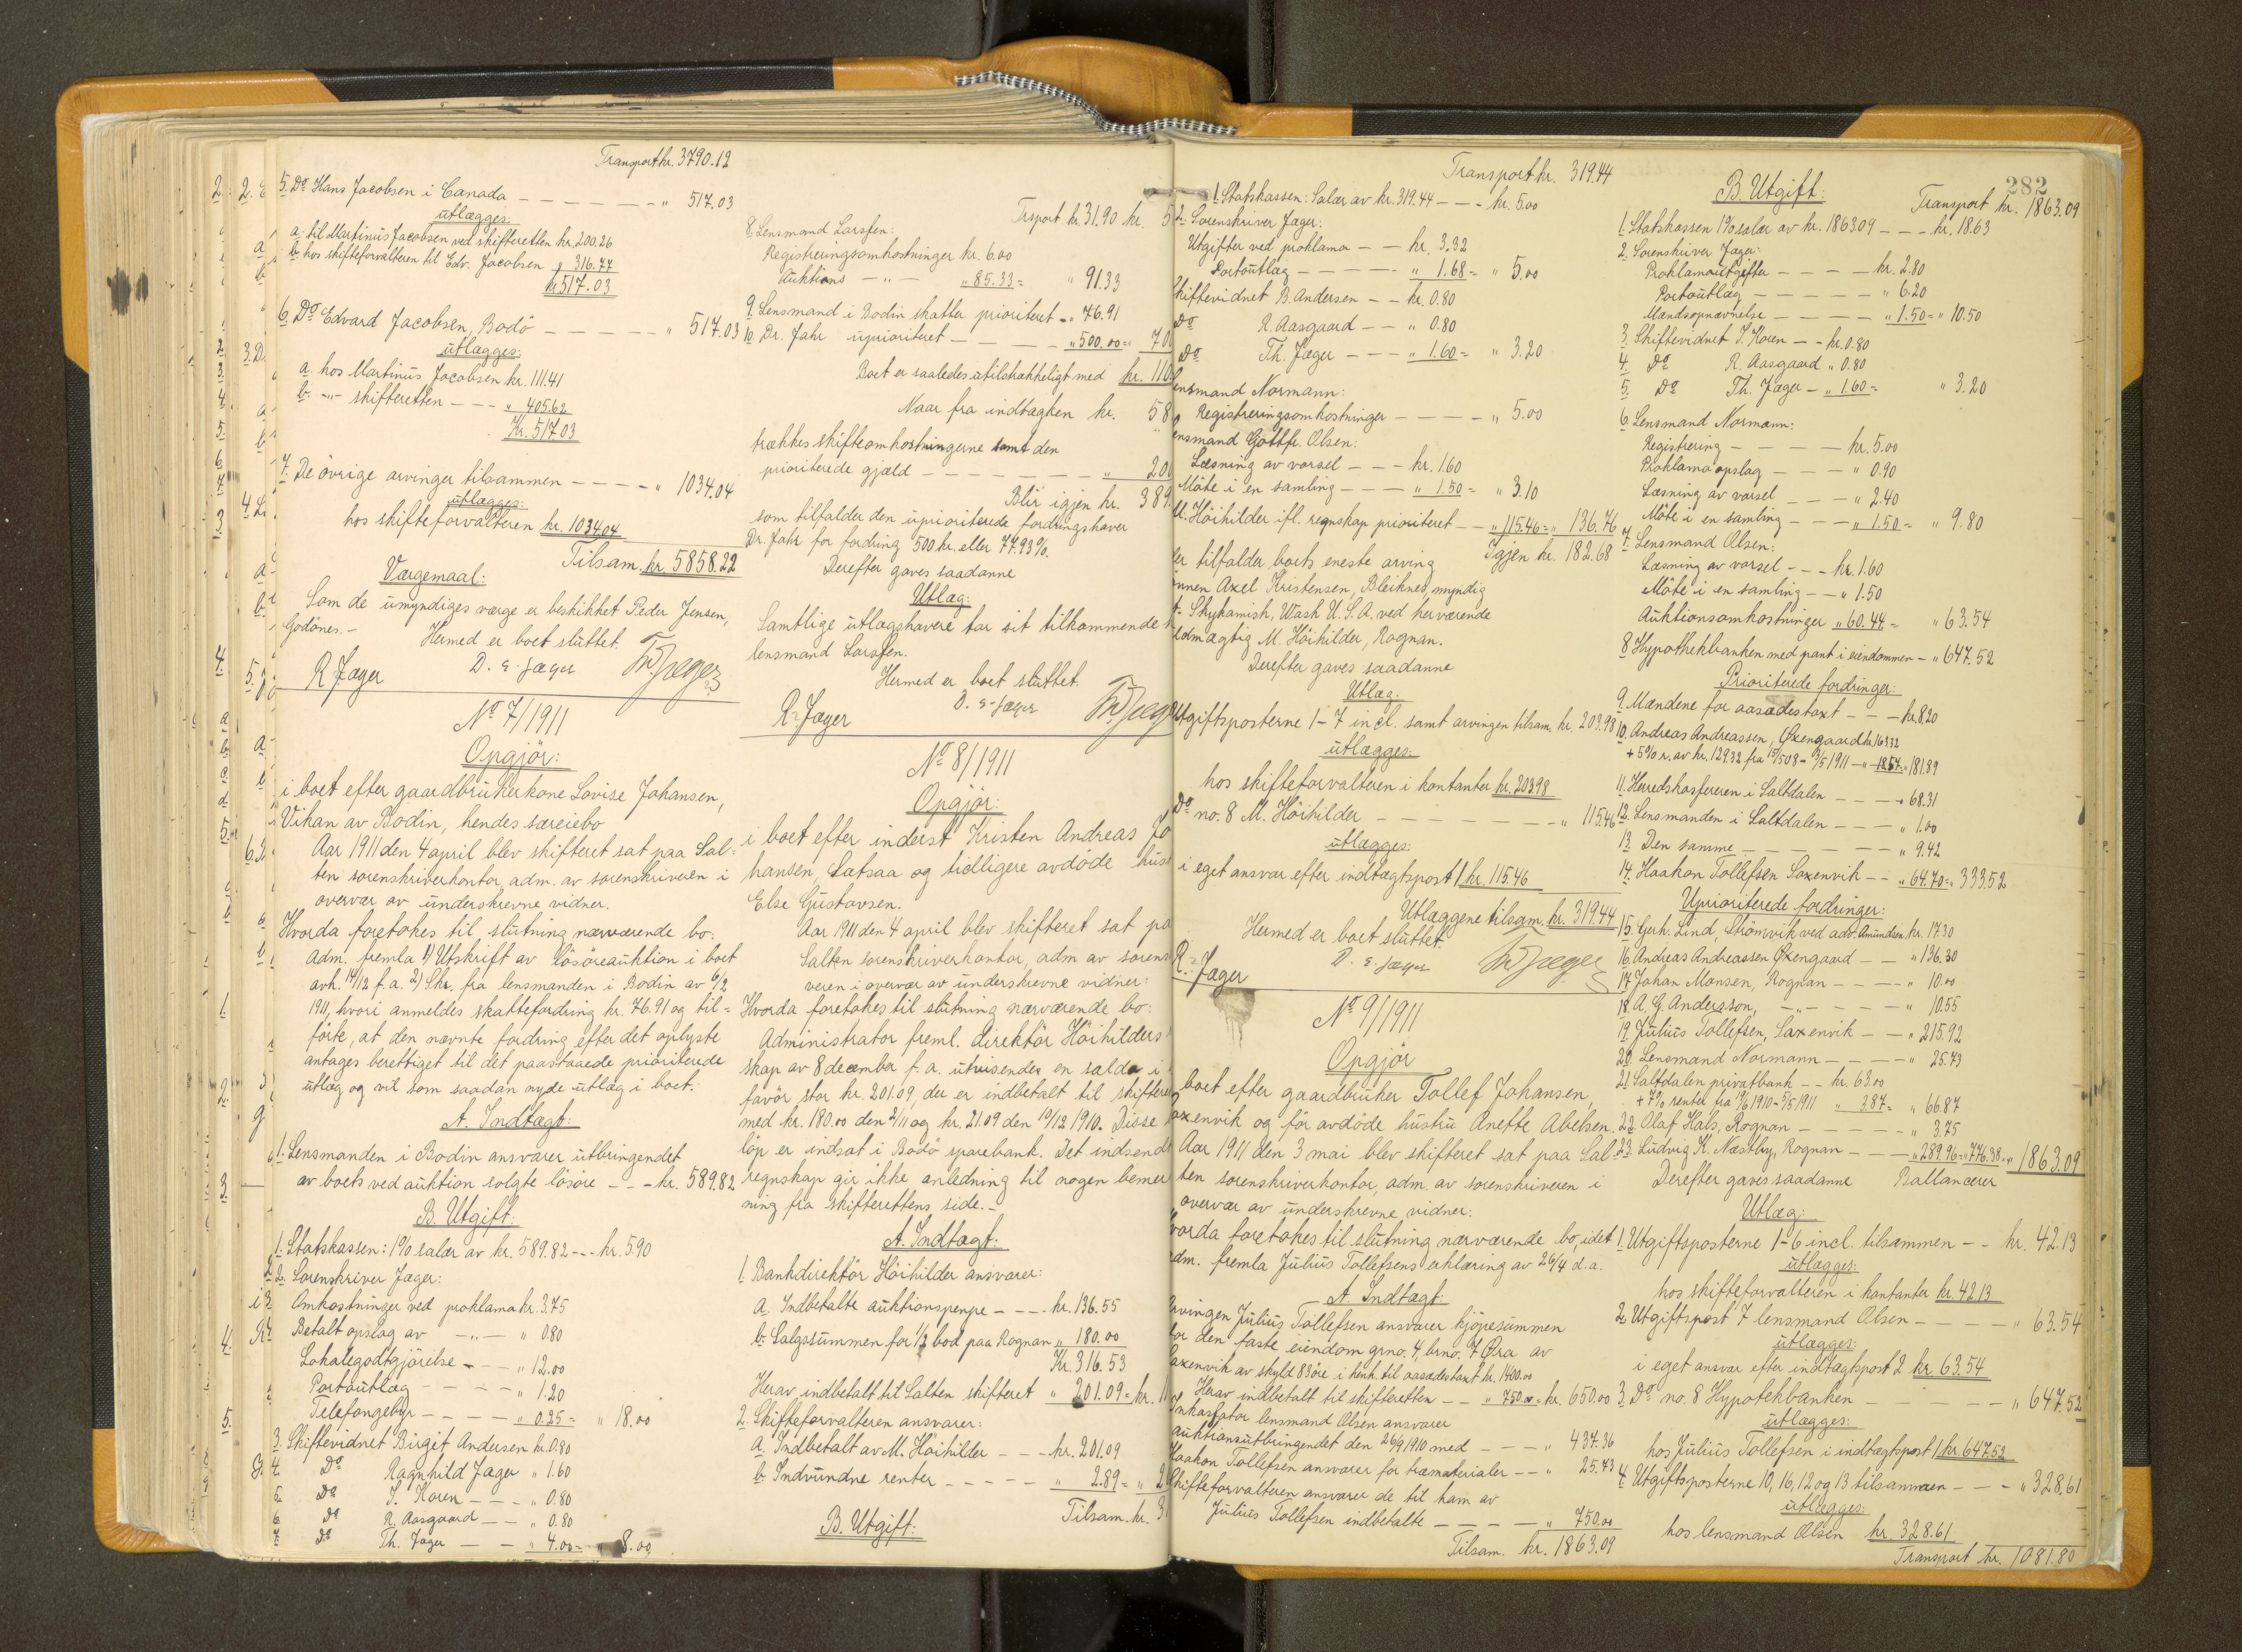 Transport kr. 3790.12
5. Do Hans Jacobsen i Canada - - - - - - " 517.03
utlægges:
a. til Martinus Jacobsen ved skifteretten kr. 200.26
b. hos skifteforvalteren til Edv. Jacobsen " 316.77
kr 517.03
6. Do Edvard Jacobsen, Bodö - - - - - " 517.03
utlægges:
a. hos Martinus Jacobsen kr. 111.41
b. -"- skifteretten - - - " 405.62
Kr. 517.03
7. De övrige arvinger tilsammen - - - - " 1034.04
utlægges:
hos skifteforvalteren kr. 1034.04
Tilsam. kr 5858.22
Værgemaal:
Som de umyndiges værge er beskikket Peder Jensen,
Godönes.-
Hermed er boet sluttet.
R Jæger D. E. Jæger Th Jæger
No 7/1911
Opgjör:
i boet efter gaardbrukerkone Lovise Johansen,
Vikan av Bodin, hendes særeiebo
Aar 1911 den 4 april blev skifteret sat paa Sal=
ten sorenskriverkontor, adm. av sorenskriveren i
overvær av underskrevne vidner.
Hvorda foretokes til slutning nærværende bo:
Adm. fremla 1) Utskrift av lösöreauktion i boet
avh. 14/12 f.a. 2) Skr. fra lensmanden i Bodin av 6/2
1911, hvori anmeldes skattefordring kr. 76.91 og til=
förte, at den nævnte fordring efter det oplyste
antages berettiget til det paastaaede prioriterede
utlæg og vil som saadan nyde utlæg i boet.
A. Indtægt:
1. Lensmanden i Bodin ansvarer utbringendet
av boets ved auktion solgte lösöre - - - kr. 589.82
B. Utgift:
1. Statskassen: 1% salær av kr. 589.82 - - - kr. 5.90
2. Sorenskriver Jæger:
Omkostninger ved proklama kr. 3.75
Betalt opslag av -"- " 0.80
Lokalegodtgjörelse - - - " 12.00
Portoutlæg - - - - " 1.20
Telefongebyr - - - - " 0.25 = " 18.00
3. Skiftevidnet Birgit Andersen kr. 0.80
4. Do Ragnhild Jæger " 1.60
5. Do S. Koren - - - " 0.80
6. Do R. Aasgaard - - " 0.80
7. Do Th. Jæger - - " 4.00 = " 8.00
Trsport kr. 31.90 kr. 5
8. Lensmand Larssen:
Registreringsomkostninger kr. 6.00
Auktions -"- " 85.33 = " 91.33
9. Lensmand i Bodin skatter prioriteret - " 76.91
10. Dr. Jahr uprioriteret - - - - " 500.00 = " 70
Boet er saaledes utilstrækkeligt med kr. 110
Naar fra indtægten kr. 58
trækkes skifteomkostningerne samt den
prioriterede gjæld - - - - - - " 20
Blir igjen kr. 389.
som tilfalder den uprioriterede fordringshaver
Dr. Jahr for fordring 500 kr. eller 77.93%.
Derefter gaves saadanne
Utlæg:
Samtlige utlægshavere tar sit tilkommende h
lensmand Larssen.
Hermed er boet sluttet.
R. Jæger D. E. Jæger Th. Jæg
No 8/1911
Opgjör:
i boet efter inderst Kristen Andreas Jo
hansen, Satsaa og tidligere avdöde hust
Else Gustavsen.
Aar 1911 den 4 april blev skifteret sat pa
Salten sorenskriverkontor, adm av sorens
veren i overvær av underskrevne vidner:
Hvorda foretokes til slutning nærværende bo:
Administrator freml. direktör Höihilders
skap av 8 december f. a. utvisende en saldo i
favör stor kr. 201.09, der er indbetalt til skiftere
med kr. 180.00 den 2/11 og kr. 21.09 den 10/12 1910. Disse
löp er indsat i Bodö sparebank. Det indsend
regnskap gir ikke anledning til nogen bemer
ning fra skifterettens side.-
A. Indtægt:
1. Bankdirektör Höihilder ansvarer:
a. Indbetalte auktionspenge - - - kr. 136.55
b. Salgssummen for 1/2 bod paa Rognan " 180.00
Kr. 316.53
Herav indbetalt til Salten skifteret " 201.09 = kr. 11
2. Skifteforvalteren ansvarer:
a. Indbetalt av M. Höihilder - - - kr. 201.09
b. Indvundne renter - - - - " 2.89 = " 20
Tilsam. kr. 3
B. Utgift:
Transport kr. 319.44
1. Statskassen: Salær av kr. 319.44 - - - kr. 5.00
2. Sorenskriver Jæger:
Utgifter ved proklama - - kr. 3.32
Portoutlæg - - - - - " 1.68 = " 5.00
Skiftevidnet B. Andersen - - kr. 0.80
Do R. Aasgaard - - " 0.80
Do Th. Jæger - - - " 1.60 = " 3.20
ensmand Normann:
Registreringsomkostninger - - - - " 5.00
ensmand Gottfr. Olsen:
Læsning av varsel - - - kr. 1.60
Möte i en samling - - - " 1.50 = " 3.10
M. Höihilder ifl. regnskap prioriteret - - " 115.46 = " 136.76
Igjen kr. 182.68
er tilfalder boets eneste arving
önnen Axel Kristensen, Bleiknes, myndig
t. Skykamish, Wash U.S.A. ved herværende
ldmægtig M. Höihilder, Rognan.
Derefter gaves saadanne
Utlæg:
Utgiftsposterne 1-7 incl. samt arvingen tilsam. kr. 203.98
utlægges:
hos skifteforvalteren i kontanter kr. 203.98
Do no. 8 M. Höihilder - - - - - - - " 115.46
utlægges:
i eget ansvar efter indtægtspost 1 kr. 115.46
Utlæggene tilsam. kr. 319.44
Hermed er boet sluttet.
R. Jæger D. E. Jæger Th Jæger
No 9/1911
Opgjör
boet efter gaardbruker Tollef Johansen,
axenvik og för avdöde hustru Anette Abelsen.
Aar 1911 den 3 mai blev skifteret sat paa Sal=
ten sorenskriverkontor, adm. av sorenskriveren i
overvær av underskrevne vidner:
vorda foretokes til slutning nærværende bo, idet
adm. fremla Julius Tollefsens erklæring av 26/4 d.a.
A. Indtægt:
Arvingen Julius Tollefsen ansvarer kjöpesummen
for den faste eiendom grno. 4, brno. 7 Øra av
Saxenvik av skyld 83 öre i henh. til aasædestaxt kr. 1400.00
Herav indbetalt til skifteretten - - " 750.00 = kr. 650.00
Inkassator lensmand Olsen ansvarer
auktionsutbringendet den 26/9 1910 med - - - " 437.36
Haakon Tollefsen ansvarer for træmaterialer - - " 25.73
Skifteforvalteren ansvarer de til ham av
Julius Tollefsen indbetalte - - - - " 750.00
Tilsam. kr. 1863.09
282
B. Utgift:
Transport kr. 1863.09
1. Statskassen 1% salær av kr. 1863.09 - - - kr. 18.63
2. Sorenskriver Jæger:
Proklamautgifter - - - - kr. 2.80
Portoutlæg - - - - - " 6.20
Mandsopnævnelse - - - - " 1.50 = " 10.50
3. Skiftevidnet S. Koren - - kr. 0.80
4. Do R. Aasgaard " 0.80
5. Do Th. Jæger - " 1.60 = " 3.20
6. Lensmand Normann:
Registrering - - - - kr. 5.00
Proklama opslag - - - " 0.90
Læsning av varsel - - - " 2.40
Möte i en samling - - - " 1.50 = " 9.80
7. Lensmand Olsen:
Læsning av varsel - - - kr. 1.60
Möte i en samling - - " 1.50
Auktionsomkostninger " 60.44 = " 63.54
8. Hypothekbanken med pant i eiendommen - " 647.52
Prioriterede fordringer:
9. Mændene for aasædestaxt - - - kr. 8.20
10. Andreas Andreassen, Øxengaard kr. 163.32
+ 5% r. av kr. 129.32 fra 15/5 08 - 3/5 1911 - " 18.57 = " 181.89
11. Herredskasfereren i Saltdalen - - - " 68.31
12. Lensmanden i Saltdalen - - - " 1.00
13. Den samme - - - - - " 9.42
14. Haakon Tollefsen Saxenvik - - " 64.70 = " 333.52
Uprioriterede fordringer:
15. Gerh. Lind, Strömvik ved adv. Amundsen kr. 17.30
16. Andreas Andreassen Øxengaard - - " 136.30
17. Johan Monsen, Rognan - - - - " 10.00
18. A. G. Andersson, -"- - - - " 10.55
19. Julius Tollefsen, Saxenvik - - " 215.92
20. Lensmand Normann - - - - " 25.73
21. Saltdalen privatbank - - kr. 63.00
+ 7% renter fra 19/6 1910 - 5/5 1911 " 3.87 = " 66.87
22. Olaf Hals, Rognan - - - - - " 3.75
23. Ludvig K. Næstby, Rognan - - - " 289.96 = " 776.38 = " 1863.09
Derefter gaves saadanne Ballancerer
Utlæg:
1. Utgiftsposterne 1-6 incl. tilsammen - - kr. 42.13
utlægges:
hos skifteforvalteren i kontanter kr. 42.13
2. Utgiftspost 7 lensmand Olsen - - - - " 63.54
utlægges:
i eget ansvar efter indtægtspost 2 kr. 63.54
3. Do no. 8 Hypotekbanken - - - - " 647.52
utlægges:
hos Julius Tollefsen i indtægtspost 1 kr. 647.52
4. Utgiftsposterne 10, 16, 12 og 13 tilsammen - - - " 328.61
utlægges:
hos lensmand Olsen kr. 328.61
Transport kr. 1081.80